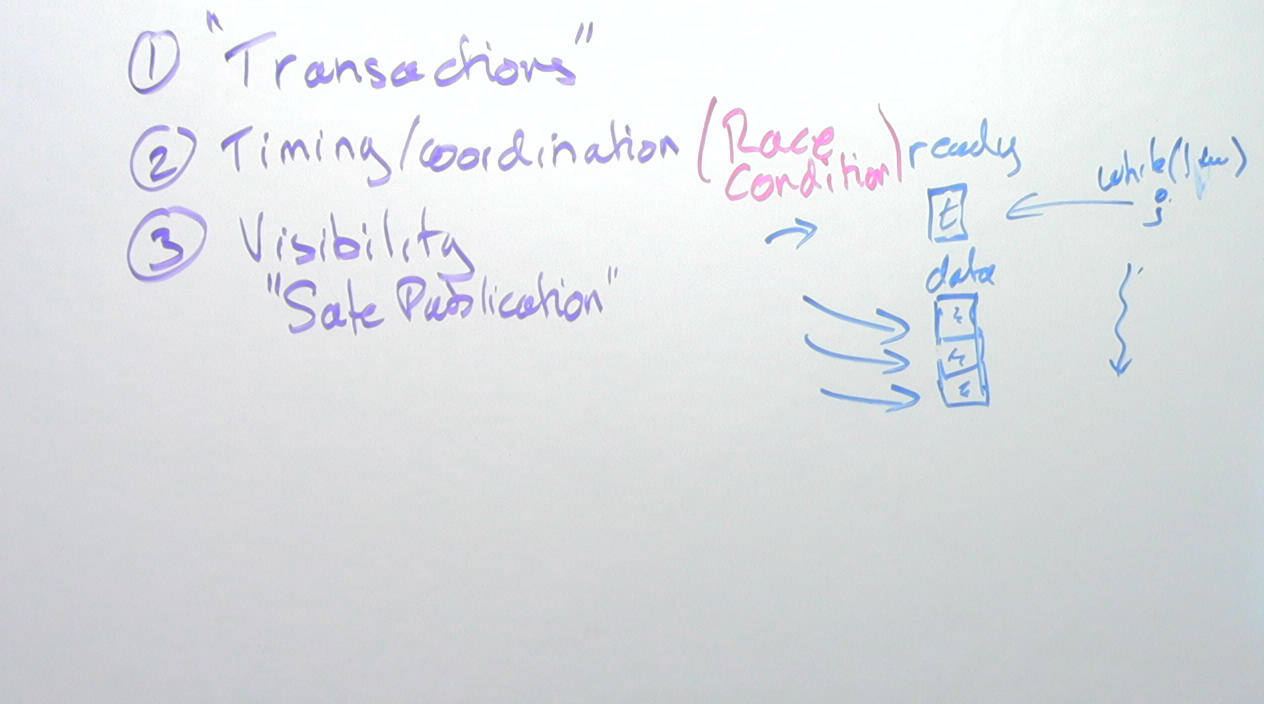 ① "Transactions"
② Timing/coordination (Race Condition)
③ Visibility
"Safe Publication"
ready
while(
;
t
data